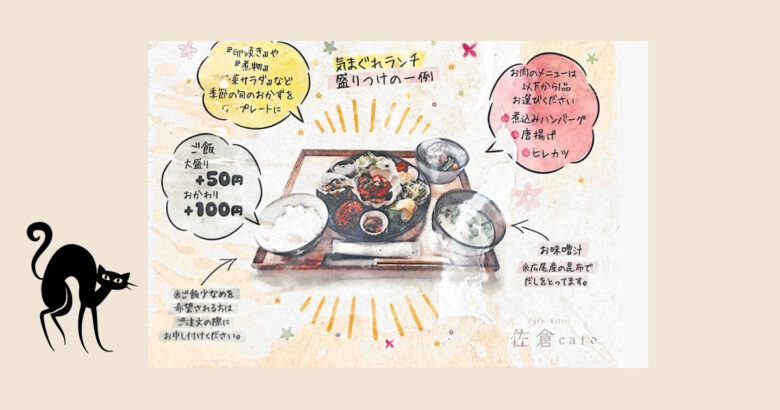 『卵焼き』や
『煮物』
菜サラダ』など
季節の旬のおかずを
プレートに
気まぐれランチ
盛りつけの一例
お肉のメニューは
以下から1品
お選びください
煮込みハンバーグ
唐揚げ
ヒレカツ
ご飯
大盛り
+50円
おかわり
+100円
お味噌汁
※広尾産の昆布で
だしをとってます。
※ご飯少なめを
希望される方は
ご注文の際に
お申し付けください。
佐倉cafe